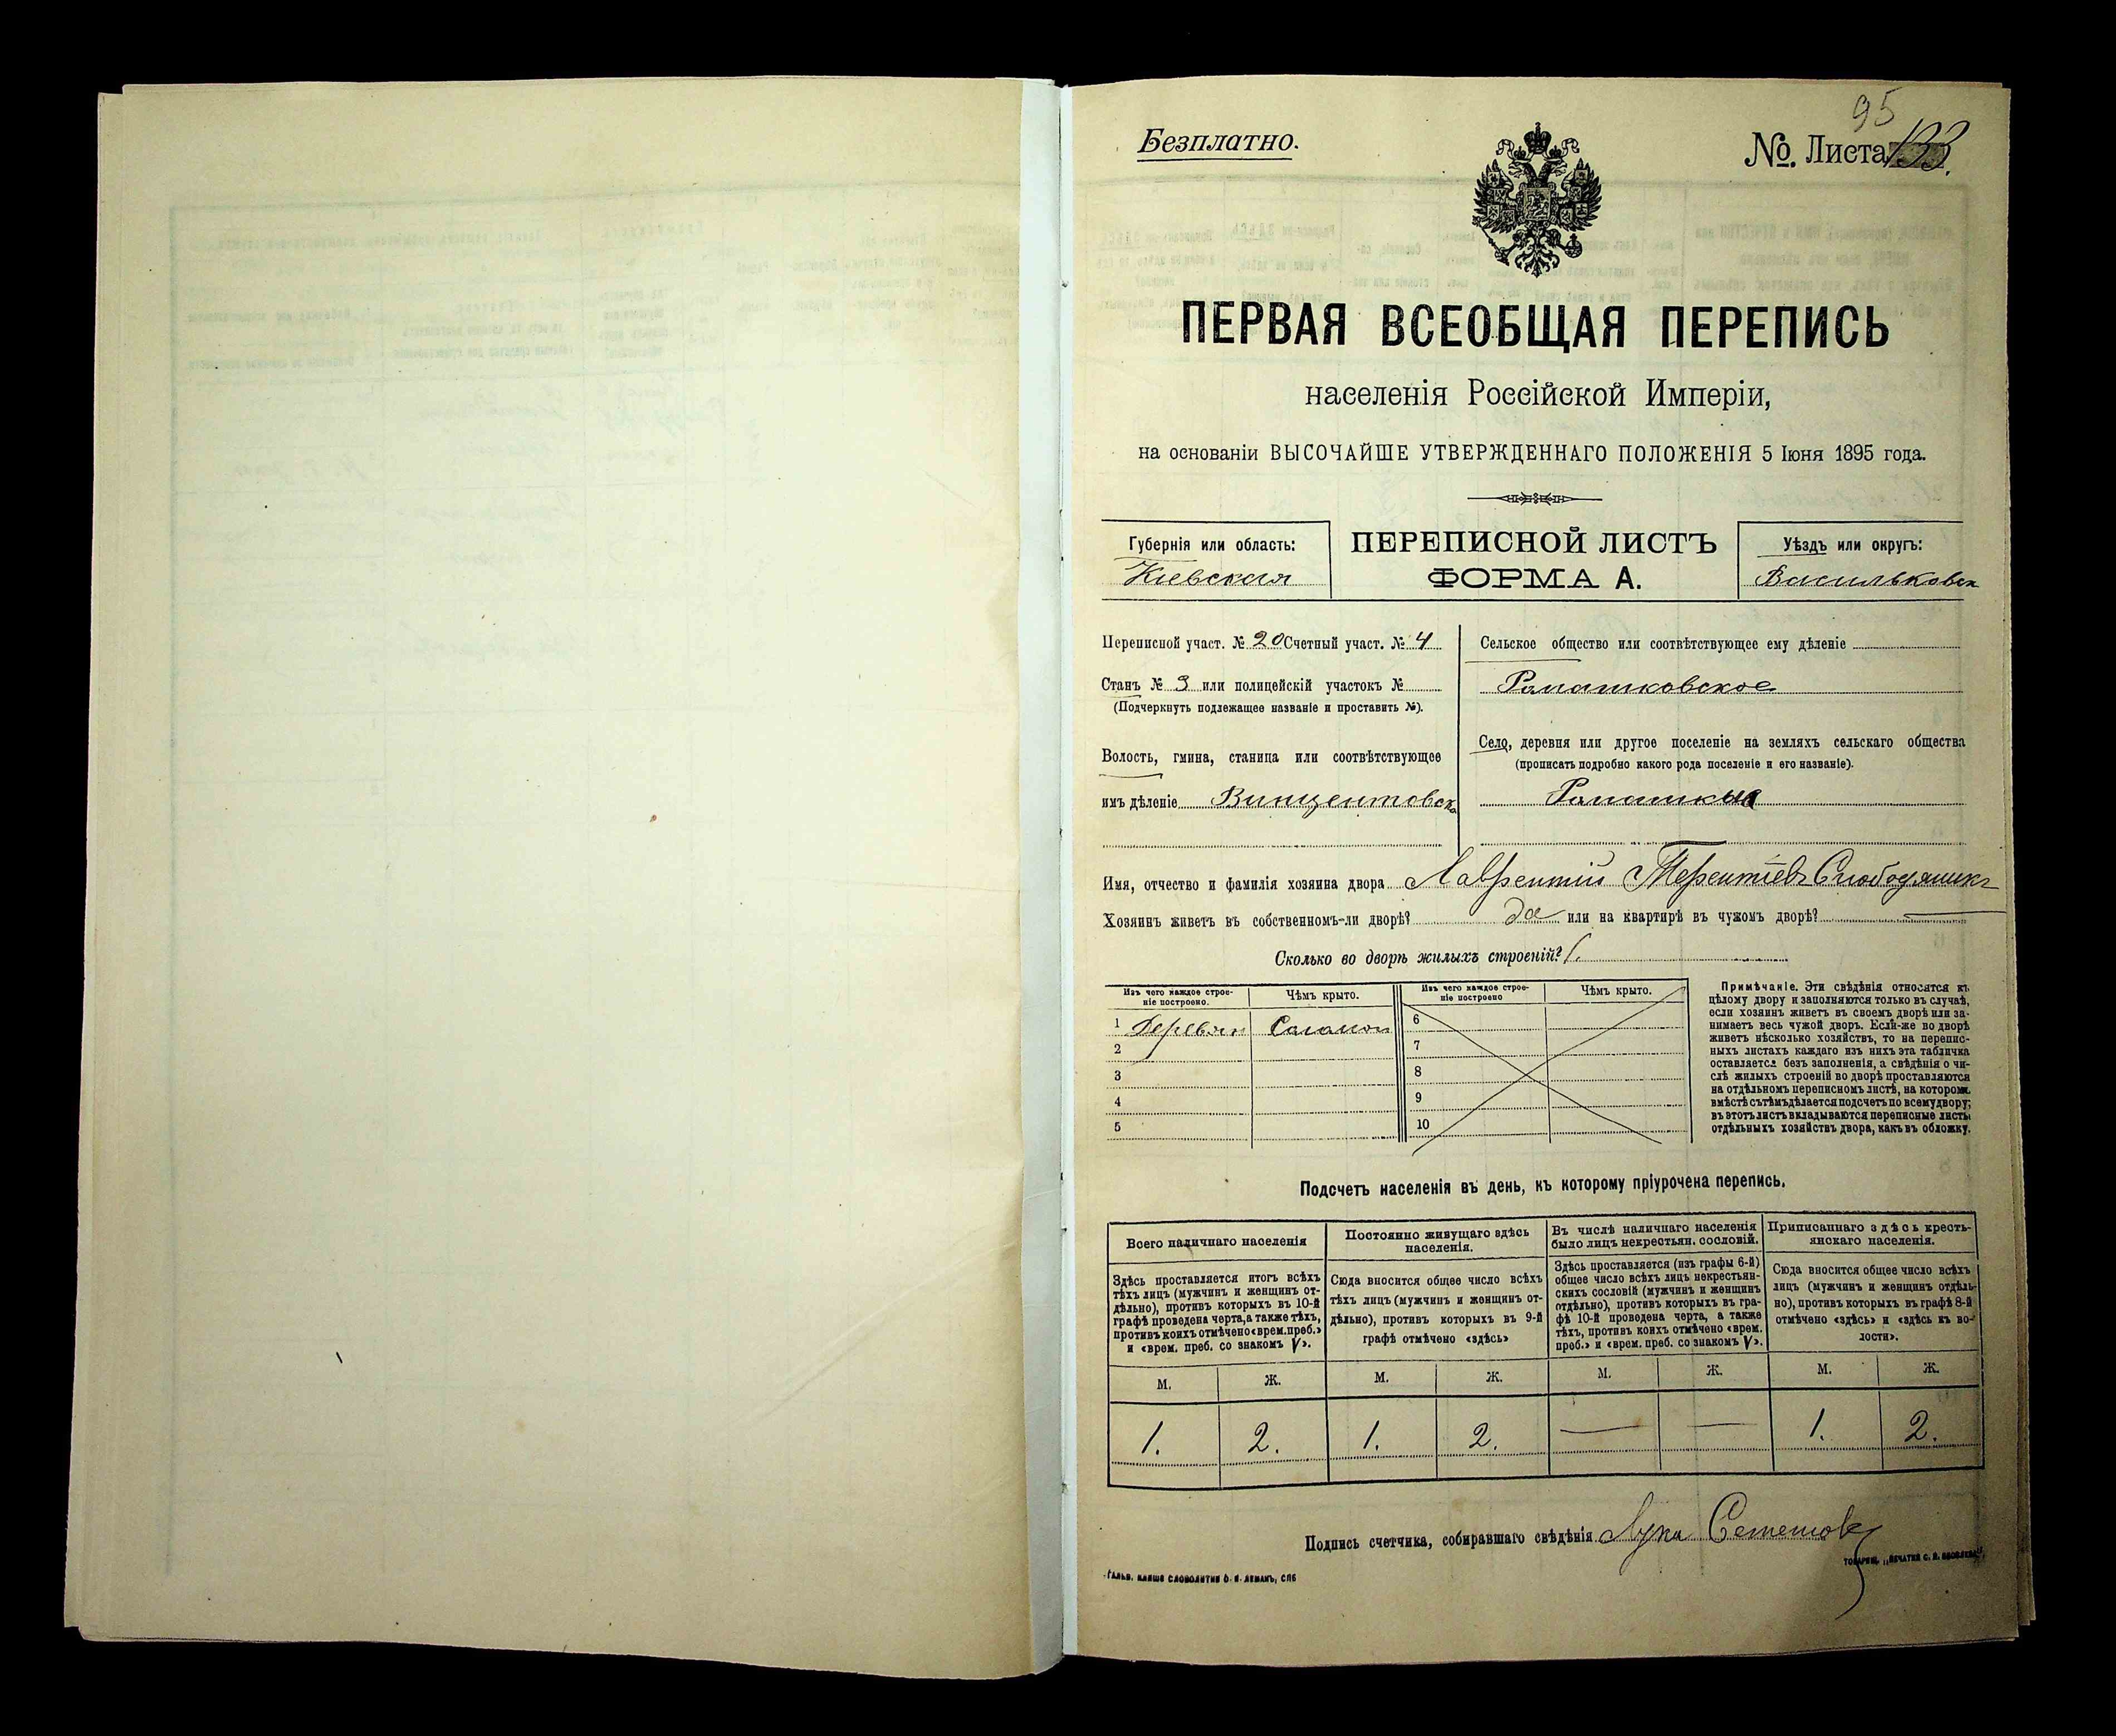 95
Безплатно.
№. Листа 133.
ПЕРВАЯ ВСЕОБЩАЯ ПЕРЕПИСЬ
населенія Россійской Имперіи,
на основаніи ВЫСОЧАЙШЕ УТВЕРЖДЕННАГО ПОЛОЖЕНІЯ 5 Іюня 1895 года.
Губернія или область:
Кіевская
ПЕРЕПИСНОЙ ЛИСТЪ
ФОРМА А.
Уѣздъ или округъ:
Васильковск
Переписной участ. № 20 Счетный участ. № 4
Станъ № 3 или полицейскій участокъ №
(Подчеркнуть подлежащее названіе и проставить №).
Волость, гмина, станица или соотвѣтствующее
имъ дѣленіе Винцентовска
Сельское общество или соотвѣтствующее ему дѣленіе
Ромашковское
Село, деревня или другое поселеніе на земляхъ сельскаго общества
(прописать подробно какого рода поселеніе и его названіе).
Имя, отчество и фамилія хозяина двора Лаврентій Терентіевъ Слободяникъ
Хозяинъ живетъ въ собственномъ-ли дворѣ? да или на квартирѣ въ чужомъ дворѣ?
Сколько во дворѣ жилыхъ строеній? 1.
Изъ чего каждое строе-
ніе построено.
Чѣмъ крыто.
Изъ чего каждое строе-
ніе построено
Чѣмъ крыто.
1 Деревян Соломой
2
3
4
5
6
7
8
9
10
Примѣчаніе. Эти свѣдѣнія относятся къ
цѣлому двору и заполняются только въ случаѣ,
если хозяинъ живетъ въ своемъ дворѣ или за-
нимаетъ весь чужой дворъ. Если-же во дворѣ
живетъ нѣсколько хозяйствъ, то на перепис-
ныхъ листахъ каждаго изъ нихъ эта табличка
оставляется безъ заполненія, а свѣдѣнія о чи-
слѣ жилыхъ строеній во дворѣ проставляются
на отдѣльномъ переписномъ листѣ, на которомъ
вмѣстѣ съ тѣмъ дѣлается подсчетъ по всему двору;
въ этотъ листъ вкладываются переписные листы
отдѣльныхъ хозяйствъ двора, какъ въ обложку.
Подсчетъ населенія въ день, къ которому пріурочена перепись.
Всего наличнаго населенія
Здѣсь проставляется итогъ всѣхъ
тѣхъ лицъ (мужчинъ и женщинъ от-
дѣльно), противъ которыхъ въ 10-й
графѣ проведена черта, а также тѣхъ,
противъ коихъ отмѣчено «врем. преб.»
и «врем. преб. со знакомъ V».
Постоянно живущаго здѣсь
населенія.
Сюда вносится общее число всѣхъ
тѣхъ лицъ (мужчинъ и женщинъ от-
дѣльно), противъ которыхъ въ 9-й
графѣ отмѣчено «здѣсь»
Въ числѣ наличнаго населенія
было лицъ некрестьян. сословій.
Здѣсь проставляется (изъ графы 6-й)
общее число всѣхъ лицъ некрестьян-
скихъ сословій (мужчинъ и женщинъ
отдѣльно), противъ которыхъ въ гра-
фѣ 10-й проведена черта, а также
тѣхъ, противъ коихъ отмѣчено «врем.
преб.» и «врем. преб. со знакомъ V».
Приписаннаго здѣсь кресть-
янскаго населенія.
Сюда вносится общее число всѣхъ
лицъ (мужчинъ и женщинъ отдѣль-
но), противъ которыхъ въ графѣ 8-й
отмѣчено «здѣсь» и «здѣсь къ во-
лости».
М. Ж. М. Ж. М. Ж. М. Ж.
1. 2. 1. 2. — — 1. 2.
Подпись счетчика, собиравшаго свѣдѣнія Лука
ГАЛЬВ. КЛИШЕ СЛОВОЛИТНИ О. И. ЛЕМАНЪ, СПБ